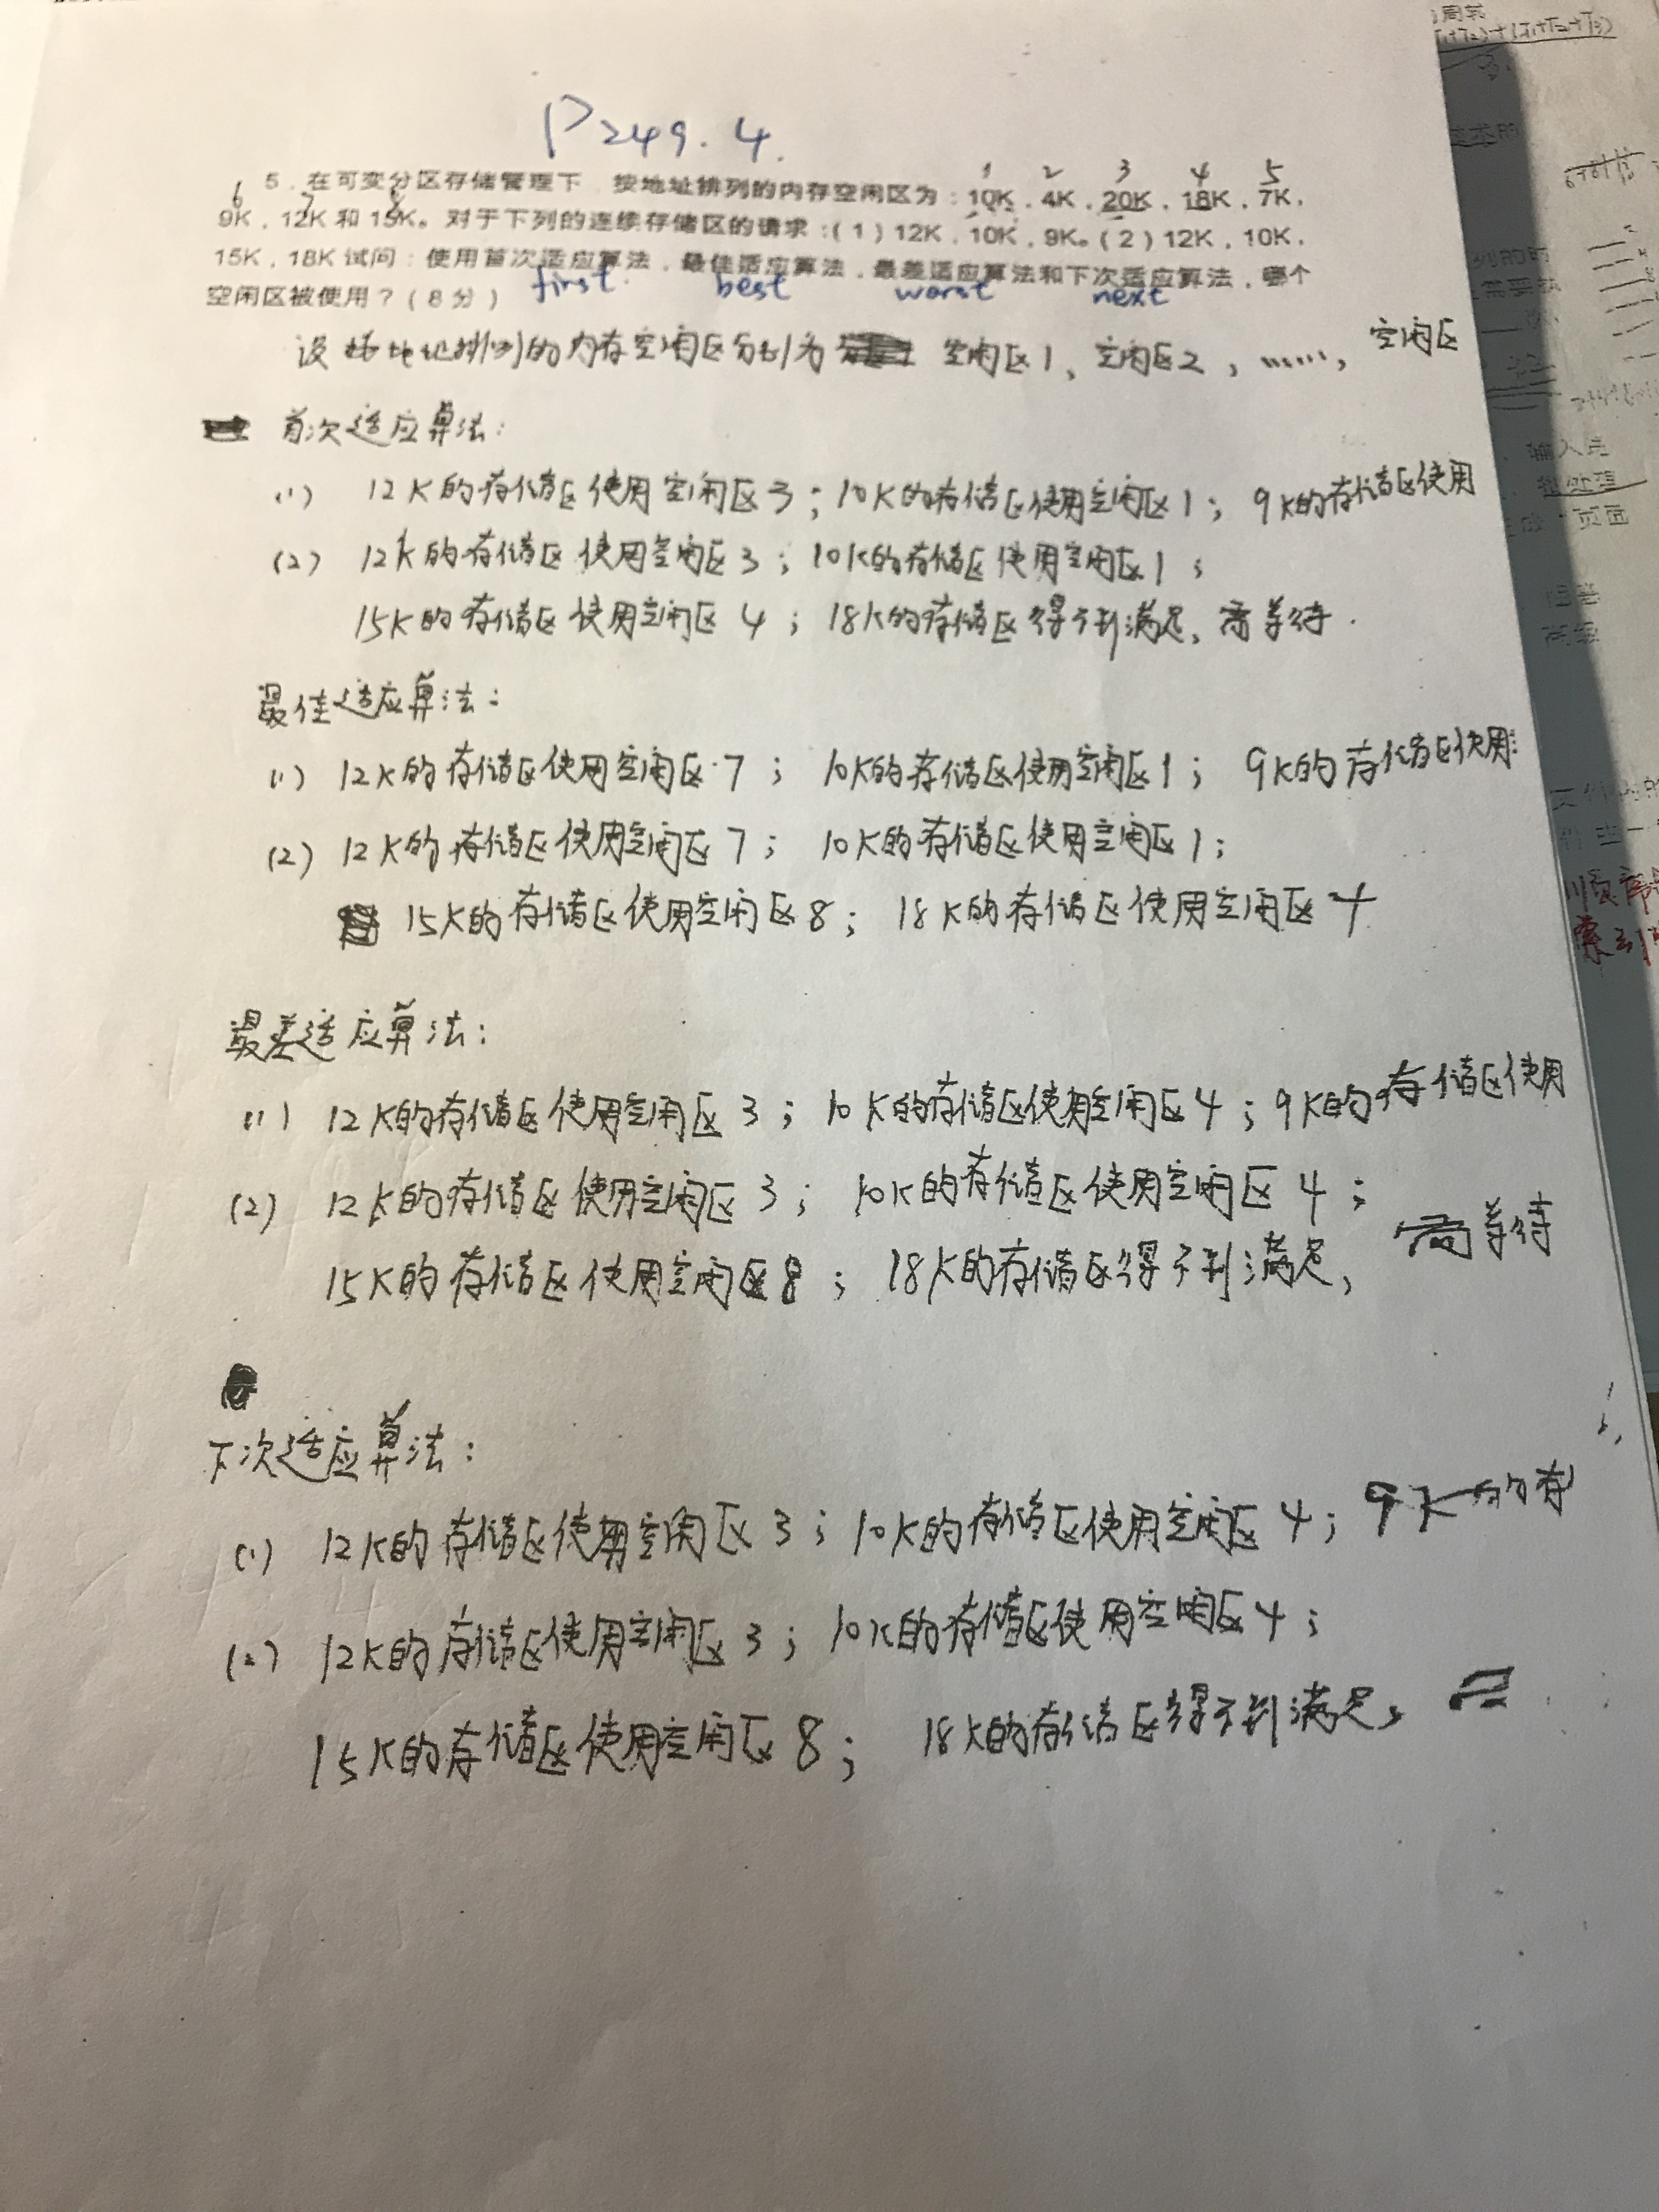 P249.4.
1 2 3 4 5
5．在可变分区存储管理下，按地址排列的内存空闲区为：10K，4K，20K，18K，7K，
6 7 8
9K，12K 和 15K。对于下列的连续存储区的请求：(1) 12K，10K，9K。(2) 12K，10K，
15K，18K 试问：使用首次适应算法，最佳适应算法，最差适应算法和下次适应算法，哪个
first. best worst next
空闲区被使用？(8分)
设按地址排列的内存空闲区分别为 空闲区1、空闲区2，……，空闲区
首次适应算法：
(1) 12K的存储区使用空闲区3；10K的存储区使用空闲区1；9K的存储区使用
(2) 12K的存储区使用空闲区3；10K的存储区使用空闲区1；
15K的存储区使用空闲区4；18K的存储区得不到满足，需等待.
最佳适应算法：
(1) 12K的存储区使用空闲区7；10K的存储区使用空闲区1；9K的存储区使用
(2) 12K的存储区使用空闲区7；10K的存储区使用空闲区1；
15K的存储区使用空闲区8；18K的存储区使用空闲区4
最差适应算法：
(1) 12K的存储区使用空闲区3；10K的存储区使用空闲区4；9K的存储区使用
(2) 12K的存储区使用空闲区3；10K的存储区使用空闲区4；
15K的存储区使用空闲区8；18K的存储区得不到满足，需等待
下次适应算法：
(1) 12K的存储区使用空闲区3；10K的存储区使用空闲区4；9K的存
(2) 12K的存储区使用空闲区3；10K的存储区使用空闲区4；
15K的存储区使用空闲区8；18K的存储区得不到满足，
周转
输入进
批处理
页面